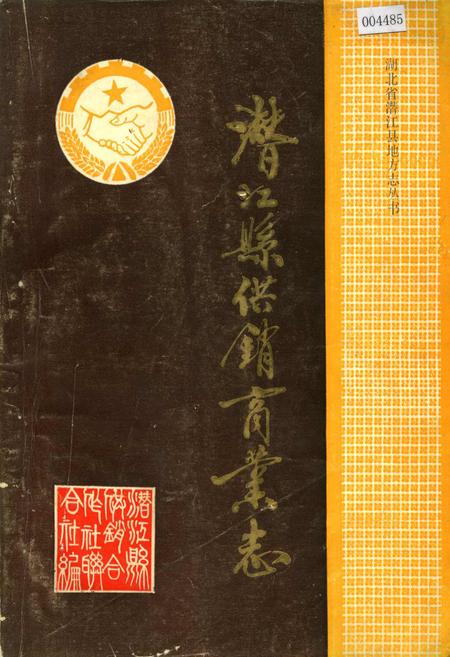 004485
湖北省潜江县地方志丛书
潛江縣供銷商業志
潛江縣
供銷合
作社聯
合社編